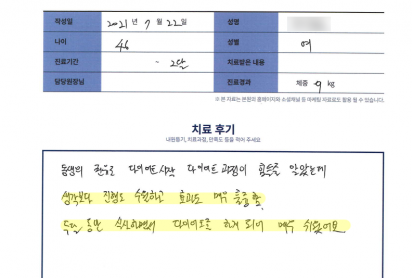 작성일 2021 년 7 월 22일 성명
나이 46 성별 여
진료기간 - 2달 치료받은 내용
담당원장님 진료경과 체중 -9 kg
※ 본 자료는 본원의 홈페이지와 소셜채널 등 마케팅 자료로도 활용 될 수 있습니다.
치료 후기
내원동기, 치료과정, 만족도 등을 적어 주세요
동생의 권유로 다이어트 시작 다이어트 과정이 힘들줄 알았는데
생각보다 진행도 수월하고 효과도 매우 훌륭함.
두달 동안 신나하면서 다이어트를 하게 되어 매우 쉬웠어요